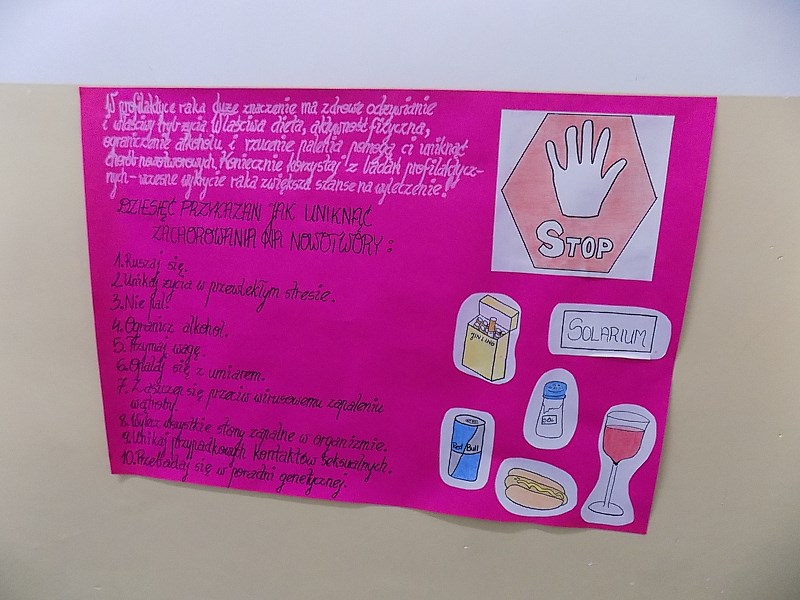 W profilaktyce raka duże znaczenie ma zdrowe odżywianie
i właściwy tryb życia. Właściwa dieta, aktywność fizyczna,
ograniczenie alkoholu i rzucenie palenia pomogą ci uniknąć
chorób nowotworowych. Koniecznie korzystaj z badań profilaktycz-
nych - wczesne wykrycie raka zwiększa szanse na wyleczenie!
DZIESIĘĆ PRZYKAZAŃ JAK UNIKNĄĆ
ZACHOROWANIA NA NOWOTWORY:
1. Ruszaj się.
2. Unikaj życia w przewlekłym stresie.
3. Nie pal.
4. Ogranicz alkohol.
5. Trzymaj wagę.
6. Opalaj się z umiarem.
7. Zaszczep się przeciw wirusowemu zapaleniu
wątroby.
8. Wylecz wszystkie stany zapalne w organizmie.
9. Unikaj przypadkowych kontaktów seksualnych.
10. Przebadaj się w poradni genetycznej.
STOP
JIN LING
SOLARIUM
SÓL
Red Bull